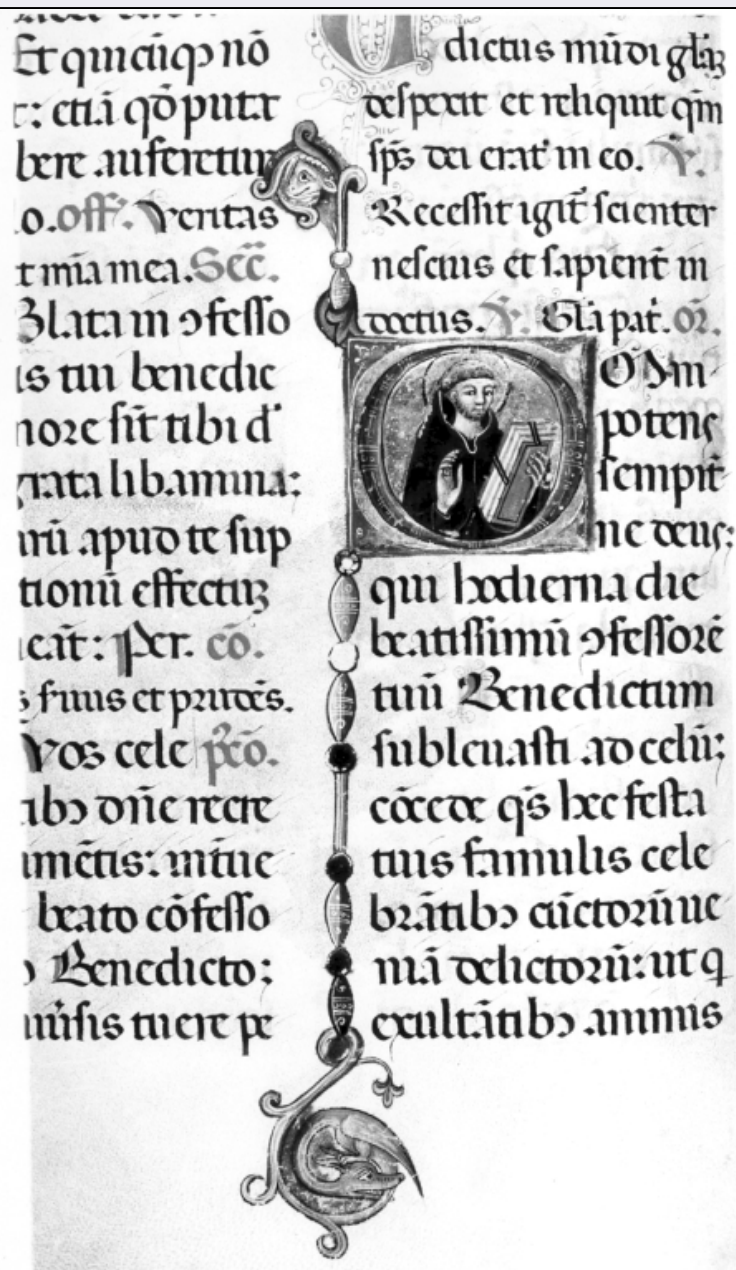 Et quicūqꝫ nō
: etiā qd̄ putat
bere auferetur
o. off. Veritas
t mīa mea. Sec̄.
Blata in ɔfesso
is tui benedic
nore sīt tibi d'
grata libamina:
apud te sup
tionū effectuꝫ
cāt: Per. cō.
s et prudēs.
Vos cele p̄cō.
tibꝫ dn̄e recre
amētis: ut
beato cōfesso
Benedicto:
tuere pe
dictus mūdi gl̄aꝫ
despexit et reliquit qm̄
sp̄s dei erat in eo. V̄.
Recessit igit̄ scienter
nescius et sapient̄ in
doctus. V̄. Gl̄a pat̄. or̄.
Om̄
potens
sempit̄
ne deus:
qui hodierna die
beatissimū ɔfessorē
tuū Benedictum
subleuasti ad celū:
cōcede qs̄ hec festa
tuis famulis cele
brātibꝫ cūctorū ue
niā delictorū: ut q
exultātibꝫ animis